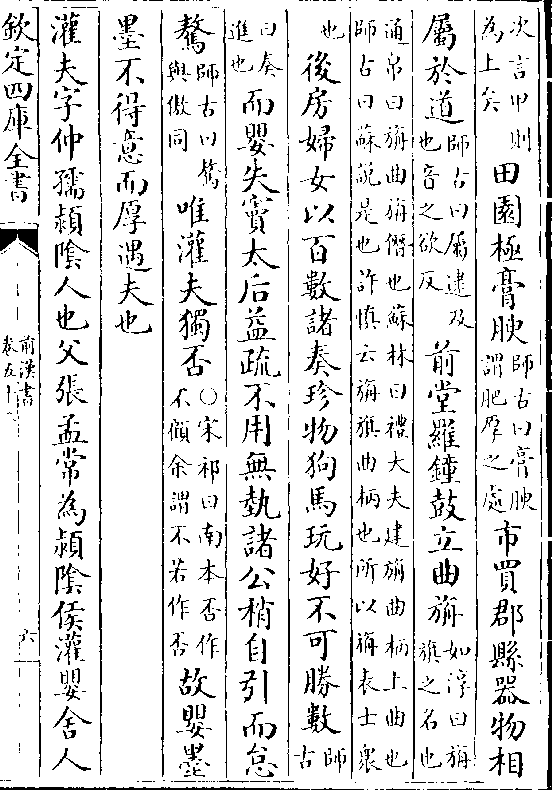 次言甲則為上矣田園極膏腴師古曰膏腴謂肥厚之處市買郡縣器物相
屬於道師古曰屬逮及也音之欲反前堂羅鐘鼓立曲旃如淳曰旃旗之名也
通帛曰旃曲旃僭也蘇林曰禮大夫建旃曲柄上曲也師古曰蘇說是也許慎云旃旗曲柄也所以旃表士衆
也後房婦女以百數諸奏珍物狗馬玩好不可勝數師古
曰奏進也而嬰失竇太后益疏不用無埶諸公稍自引而怠
驁師古曰驁與傲同唯灌夫獨否○宋祁曰南本否作不傾余謂不若作否故嬰墨
墨不得意而厚遇夫也
灌夫字仲孺頴陰人也父張孟常為頴陰侯灌嬰舍人
欽定四庫全書
前漢書
卷五十二
六